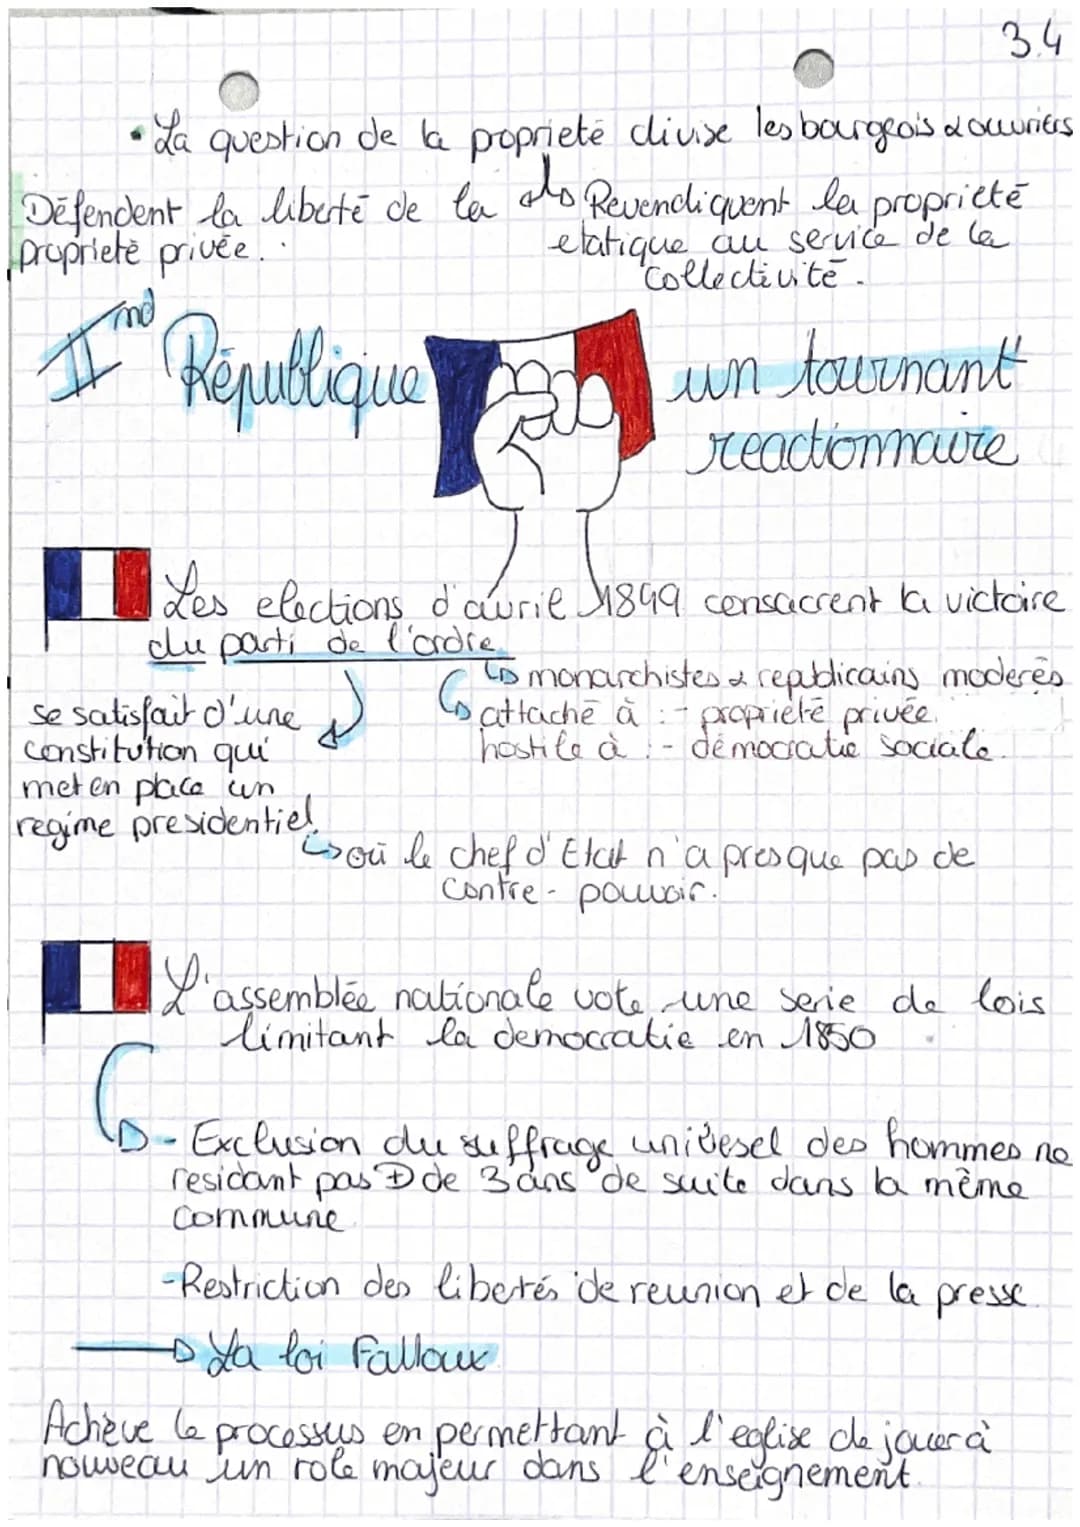 3.4
• La question de la proprieté divise les bourgeois & ouvriers
Défendent la liberté de la
propriété privée.
Revendiquent la propriété
etatique au service de la
collectivité.
IInd République
un tournant
reactionnaire
Les elections d'avril 1849 consacrent la victoire
du parti de l'ordre.
↳ monarchistes & republicains moderés
↳ attaché à : - propriété privée.
hostile à : - démocratie sociale.
se satisfait d'une
constitution qui
met en place un
regime presidentiel.
↳ où le chef d'Etat n'a presque pas de
contre-pouvoir.
L'assemblée nationale vote une serie de lois
limitant la democratie en 1850
- Exclusion du suffrage univesel des hommes ne
residant pas + de 3 ans de suite dans la même
commune
- Restriction des libertés de reunion et de la presse.
→ La loi Falloux
Achève le processus en permettant à l'eglise de jouer à
nouveau un role majeur dans l'enseignement.